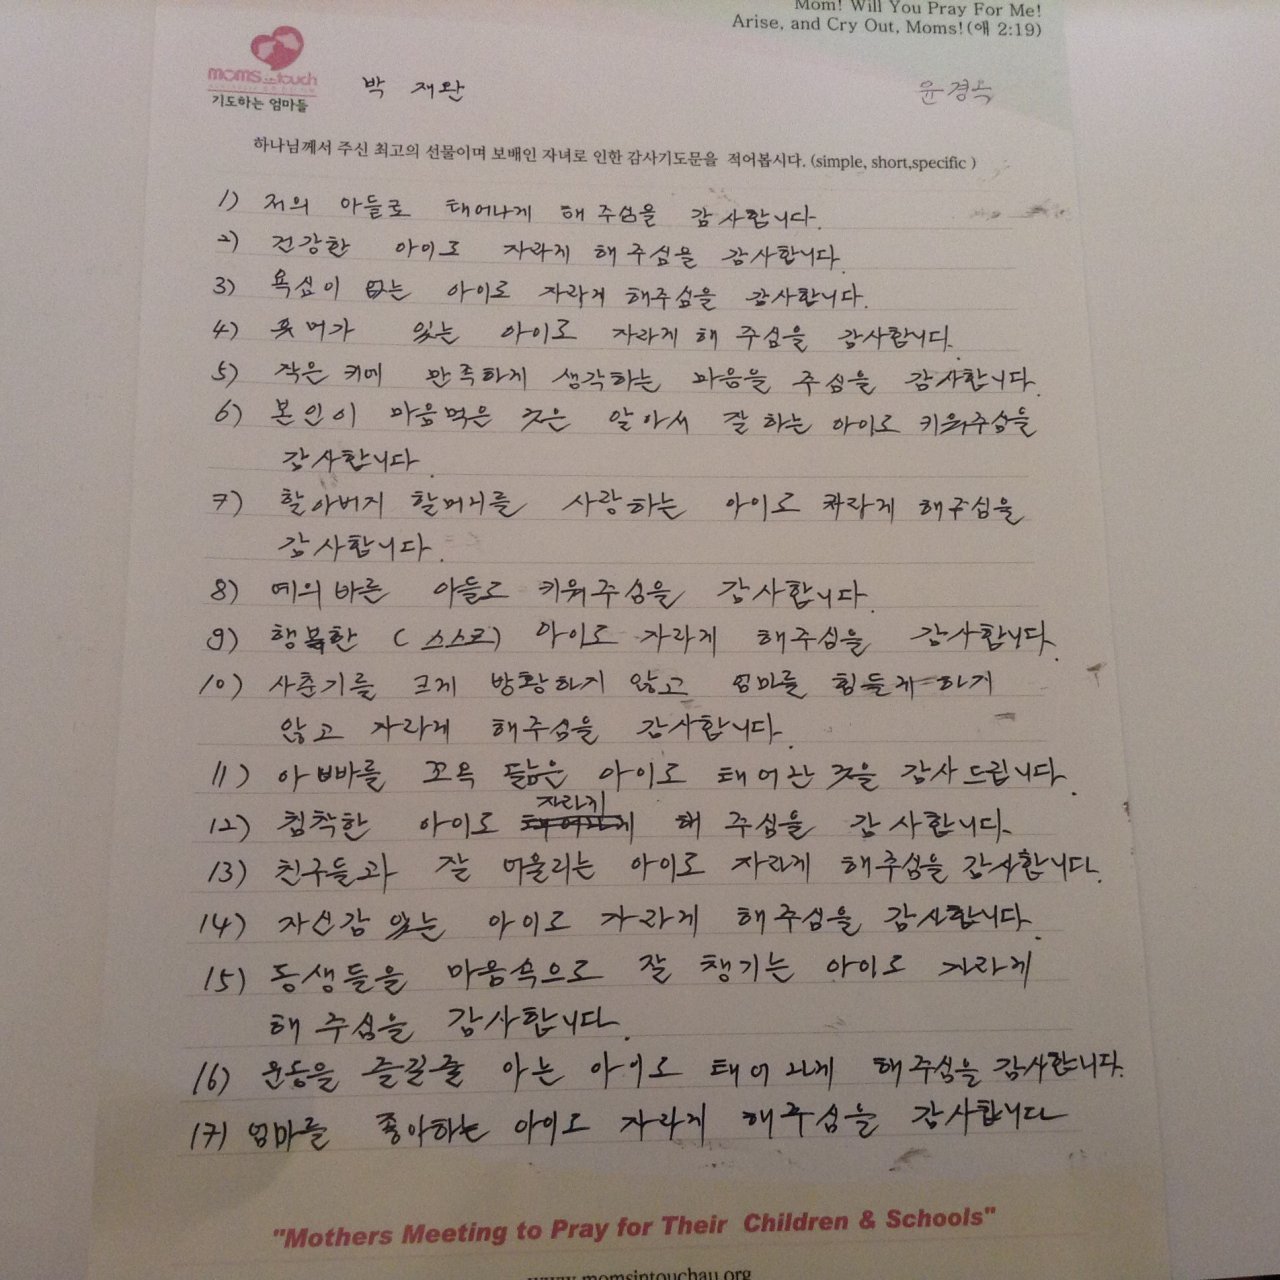 Mom! Will You Pray For Me!
Arise, and Cry Out, Moms!(애 2:19)
moms in touch
기도하는 엄마들
박 재완
윤경옥
하나님께서 주신 최고의 선물이며 보배인 자녀로 인한 감사기도문을 적어봅시다. (simple, short,specific )
1) 저의 아들로 태어나게 해 주심을 감사합니다.
2) 건강한 아이로 자라게 해 주심을 감사합니다.
3) 욕심이 없는 아이로 자라게 해주심을 감사합니다.
4) 유머가 있는 아이로 자라게 해 주심을 감사합니다.
5) 작은 키에 만족하게 생각하는 마음을 주심을 감사합니다.
6) 본인이 마음먹은 것은 알아서 잘 하는 아이로 키워주심을
감사합니다.
7) 할아버지 할머니를 사랑하는 아이로 자라게 해주심을
감사합니다.
8) 예의바른 아들로 키워주심을 감사합니다.
9) 행복한 (스스로) 아이로 자라게 해주심을 감사합니다.
10) 사춘기를 크게 방황하지 않고 엄마를 힘들게 하지
않고 자라게 해주심을 감사합니다.
11) 아빠를 꼬옥 닮은 아이로 태어난 것을 감사드립니다.
12) 침착한 아이로 자라게 해 주심을 감사합니다.
13) 친구들과 잘 어울리는 아이로 자라게 해주심을 감사합니다.
14) 자신감 있는 아이로 자라게 해주심을 감사합니다.
15) 동생들을 마음속으로 잘 챙기는 아이로 자라게
해 주심을 감사합니다.
16) 운동을 즐길줄 아는 아이로 태어나게 해주심을 감사합니다.
17) 엄마를 좋아하는 아이로 자라게 해주심을 감사합니다
"Mothers Meeting to Pray for Their Children & Schools"
www.momsintouchau.org